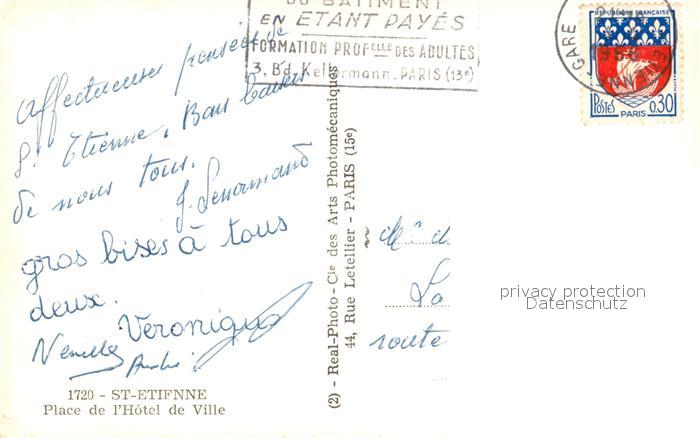 DU BATIMENT
EN ETANT PAYÉS
FORMATION PROFelle DES ADULTES
3, Bd. Kellermann - PARIS (13e)
GARE
RÉPUBLIQUE FRANÇAISE
POSTES 0.30
PARIS
affectueuses pensées de
St Etienne. Bons baisers
de nous tous.
J. Lenormand
gros bises à tous
deux.
Véronique
1720 - ST-ETIENNE
Place de l'Hôtel de Ville
(2) - Real-Photo - Cie des Arts Photomécaniques
44, Rue Letellier - PARIS (15e)
La
route
privacy protection
Datenschutz